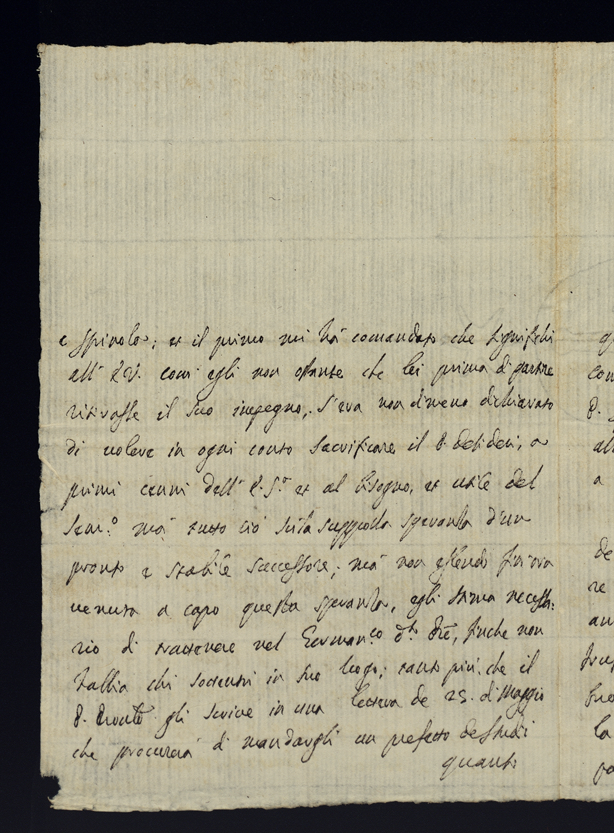 e Spinola; et il primo mi hà comandato che significhi
all' com' egli non ostante che lei prima di partire
ritirasse il suo impegno, s'era non di meno dichiarato
di volere in ogni conto sacrificare il P. Desideri, a
primi cenni dell' et al bisogno, et utile del
Sem.º mà tutto ciò sù la supposta speranza d'un
pronto e stabile successore; mà non essendo fin ora
venuta a capo questa speranza, egli stima necessa:
rio di trattenere nel German.co d.to finche non
habbia chi sostenti in suo luogo; tanto più che il
P. gli scrive in una lettera de 25. di Maggio
che procurerà di mandargli un prefetto de studi
quanto
co
P.
al
a
de
re
an
la